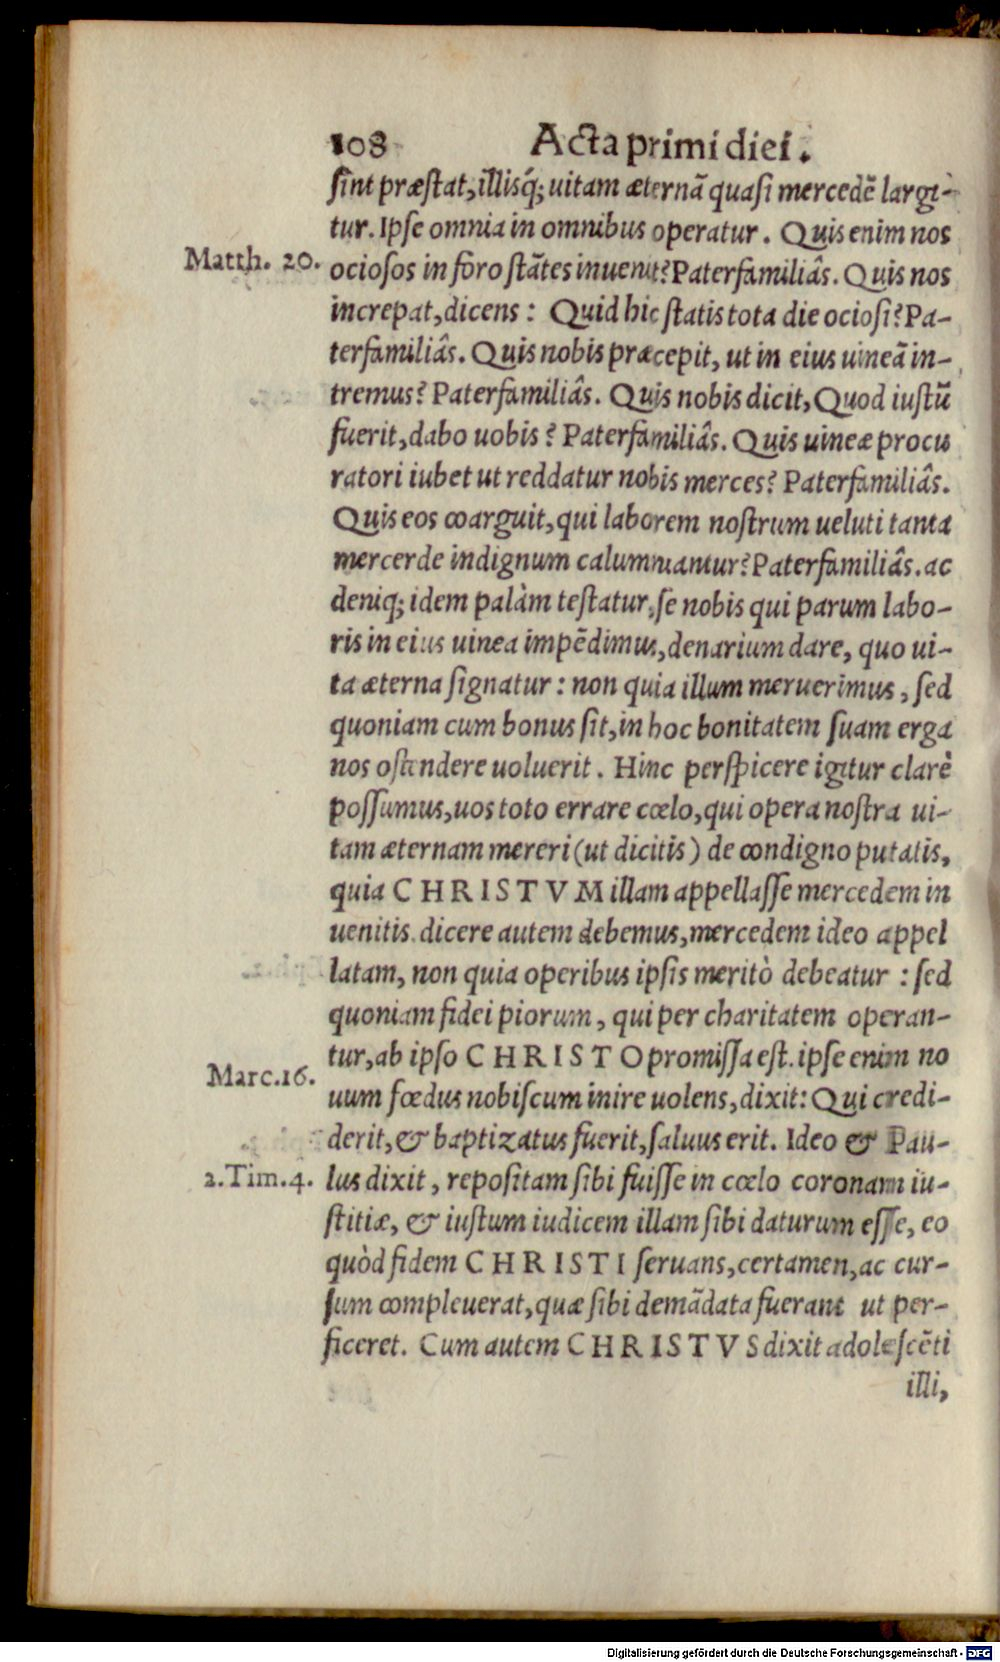 108 Acta primi diei.
sint præstat, illisq́; uitam æternã quasi mercedẽ largi-
tur. Ipse omnia in omnibus operatur. Quis enim nos
Matth. 20.
ociosos in foro stãtes inuenit? Paterfamiliâs. Quis nos
increpat, dicens: Quid hic statis tota die ociosi? Pa-
terfamiliâs. Quis nobis præcepit, ut in eius uineã in-
tremus? Paterfamiliâs. Quis nobis dicit, Quod iustũ
fuerit, dabo uobis? Paterfamiliâs. Quis uineæ procu
ratori iubet ut reddatur nobis merces? Paterfamiliâs.
Quis eos coarguit, qui laborem nostrum ueluti tanta
mercerde indignum calumniantur? Paterfamiliâs. ac
deniq; idem palàm testatur, se nobis qui parum labo-
ris in eius uinea impẽdimus, denarium dare, quo ui-
ta æterna signatur: non quia illum meruerimus, sed
quoniam cum bonus sit, in hoc bonitatem suam erga
nos ostendere uoluerit. Hinc perspicere igitur clarè
possumus, uos toto errare cœlo, qui opera nostra ui-
tam æternam mereri (ut dicitis) de condigno putatis,
quia CHRISTVM illam appellasse mercedem in
uenitis. dicere autem debemus, mercedem ideo appel
latam, non quia operibus ipsis meritò debeatur: sed
quoniam fidei piorum, qui per charitatem operan-
tur, ab ipso CHRISTO promissa est. ipse enim no
Marc. 16.
uum fœdus nobiscum inire uolens, dixit: Qui credi-
derit, & baptizatus fuerit, saluus erit. Ideo & Pau-
2. Tim. 4.
lus dixit, repositam sibi fuisse in cœlo coronam iu-
stitiæ, & iustum iudicem illam sibi daturum esse, eo
quòd fidem CHRISTI seruans, certamen, ac cur-
sum compleuerat, quæ sibi demãdata fuerant ut per-
ficeret. Cum autem CHRISTVS dixit adolescẽti
illi,
Digitalisierung gefördert durch die Deutsche Forschungsgemeinschaft - DFG